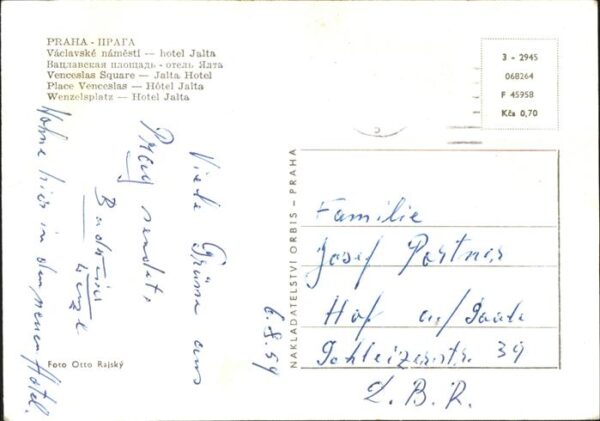 PRAHA - ПРАГА
Václavské náměstí — hotel Jalta
Вацлавская площадь - отель Ялта
Venceslas Square — Jalta Hotel
Place Venceslas — Hôtel Jalta
Wenzelsplatz — Hotel Jalta
3 - 2945
068264
F 45958
Kčs 0,70
Viele Grüsse aus
Prag sendet,
Wohne hier in dem neuen Hotel.
6.8.59
NAKLADATELSTVÍ ORBIS — PRAHA
Familie
Josef Portner
Hof a/Saale
Schleizerstr. 39
D.B.R.
Foto Otto Rajský